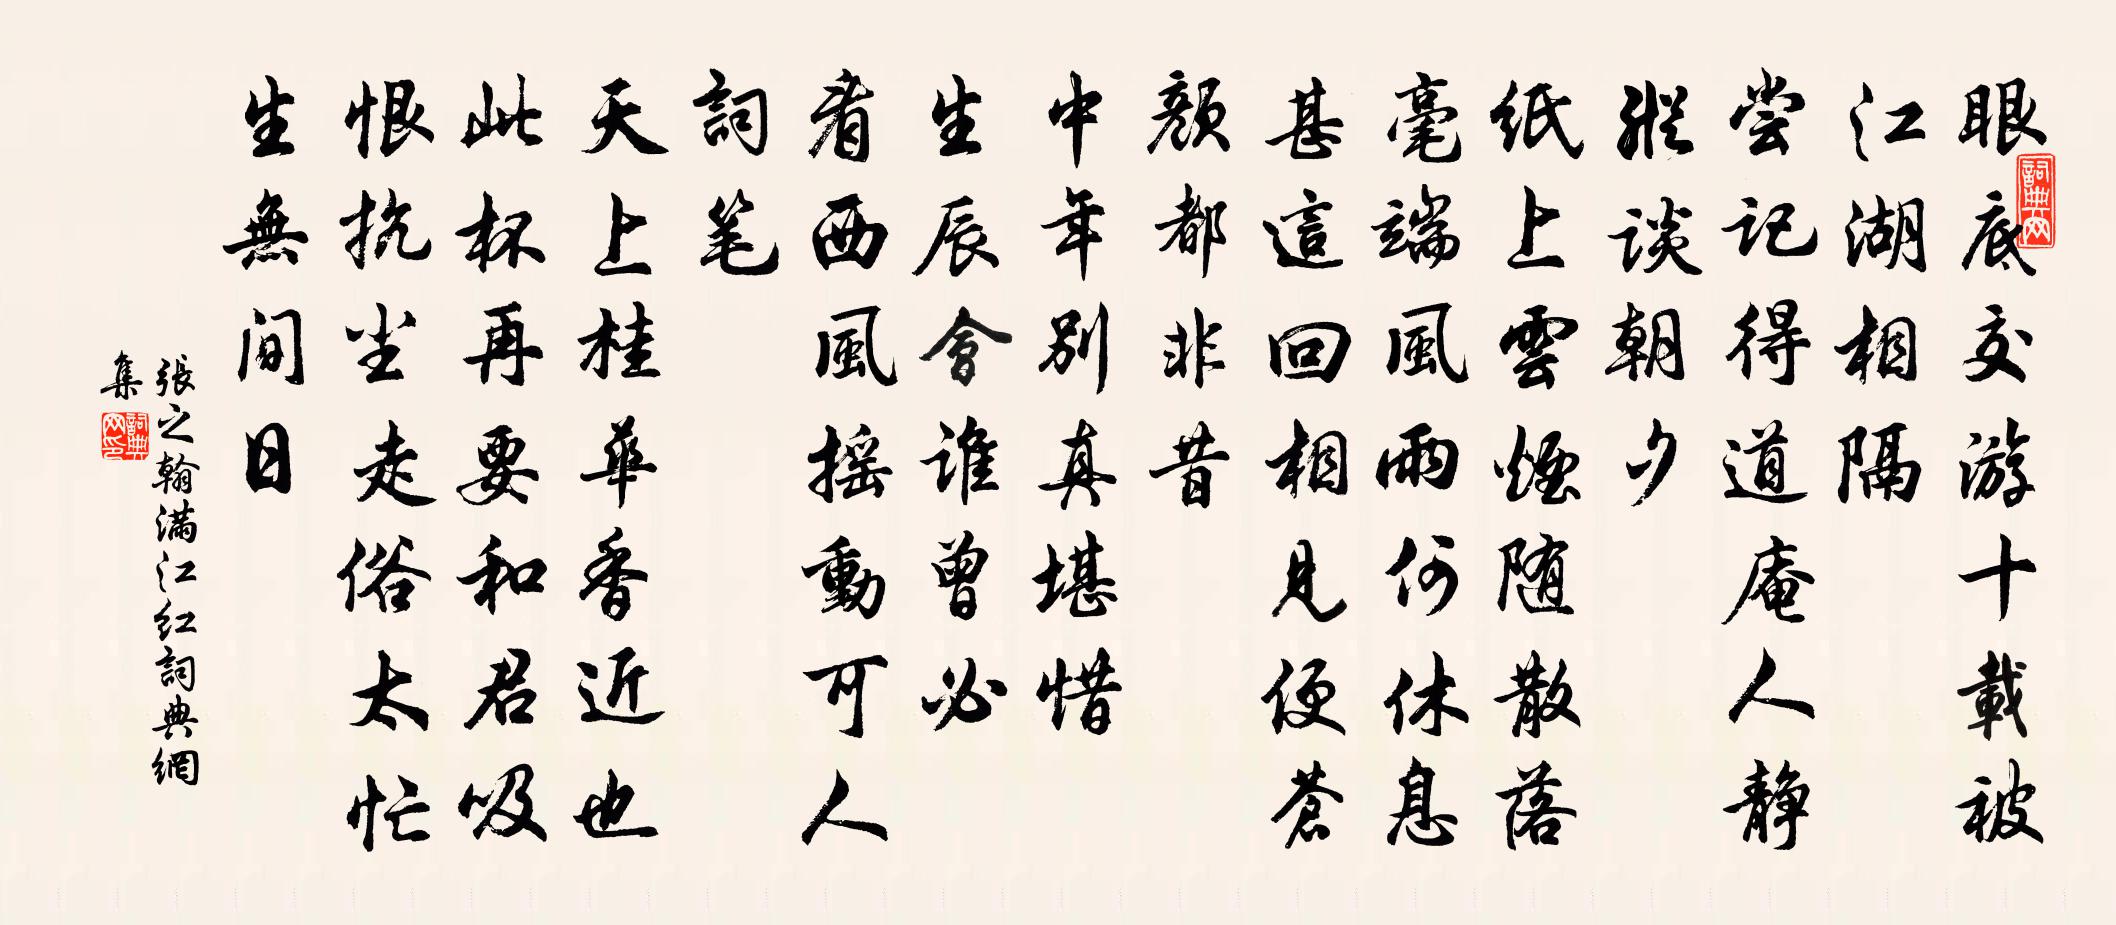 眼底交游十載被
江湖相隔
尝記得道庵人静
縱談朝夕
纸上雲煙随散落
毫端風雨何休息
甚這回相見便蒼
顔都非昔
中年别真堪惜
生辰會谁曾必
看西風摇動可人
詞笔
天上桂華香近也
此杯再要和君吸
恨抗尘走俗太忙
生無间日
張之翰满江红詞典網
集
詞典网
詞典网印